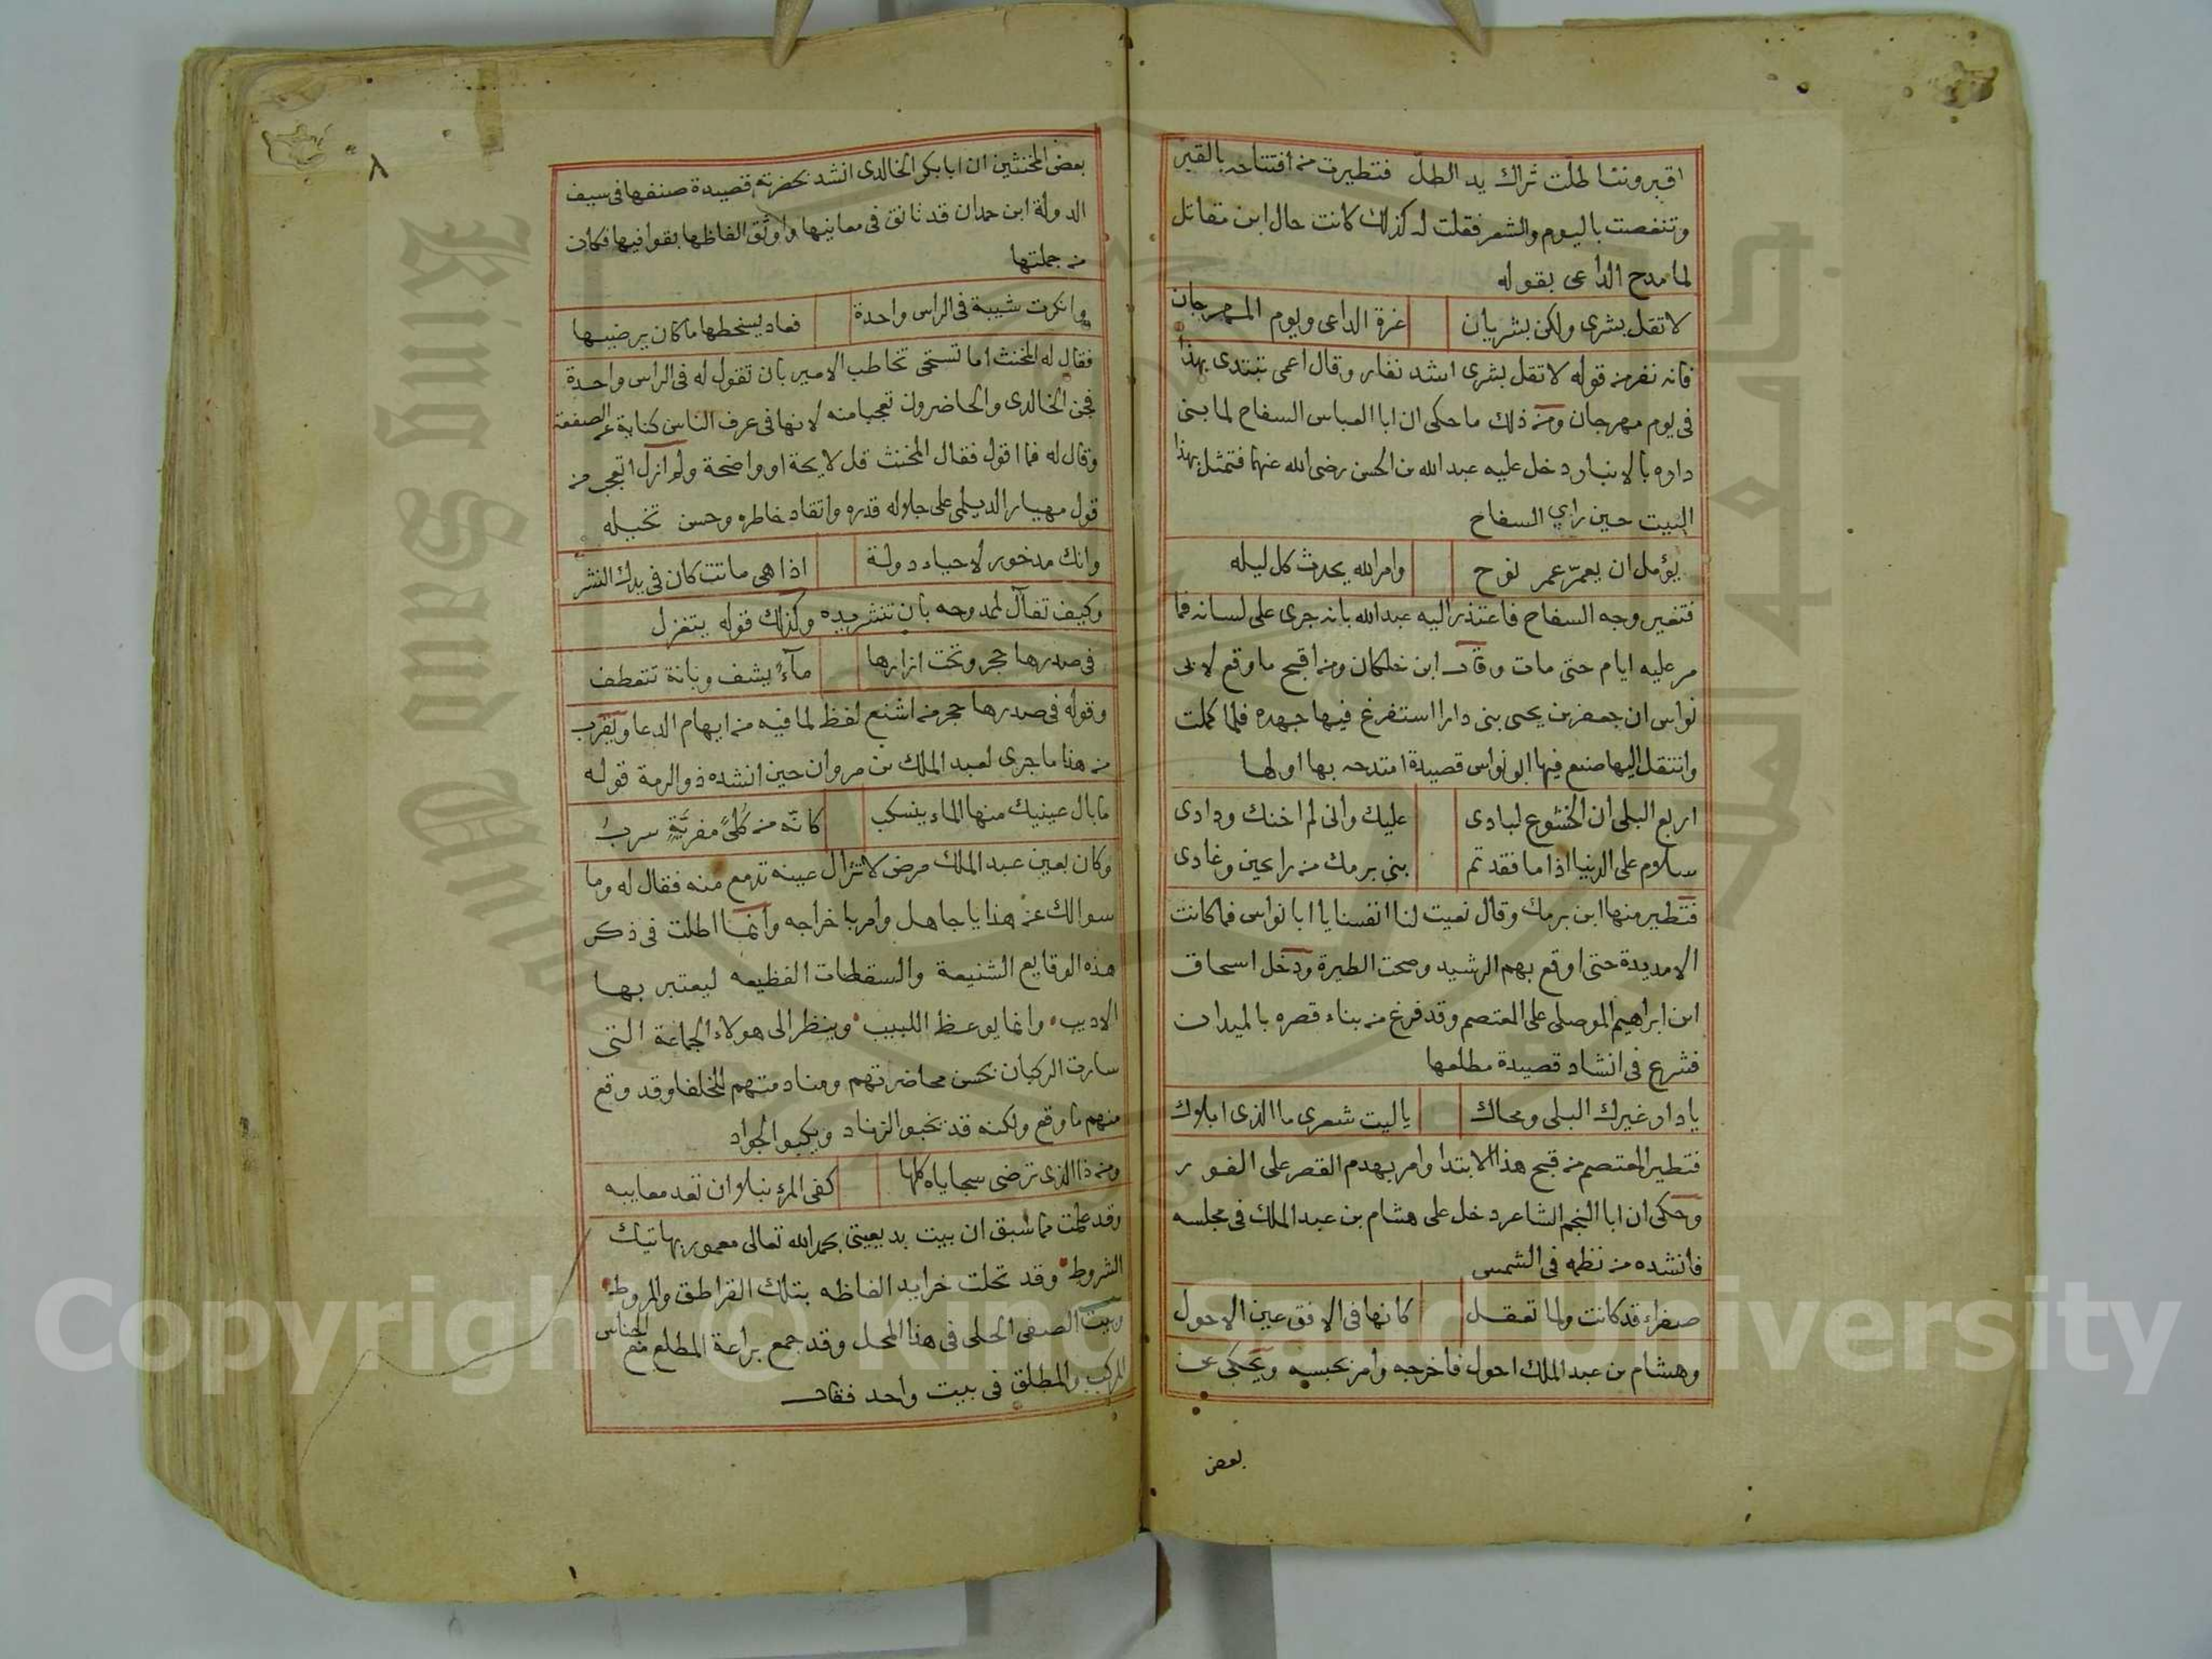 اقبرونتنا طلت ثراك يد الطل فتطيرت من افتتاحه بالقبر
وتنغصت باليوم والشعر فقلت له كذلك كانت حال ابن مقاتل
لما مدح الداعى بقوله
لا تقل بشرى ولكن بشريان غرة الداعى ويوم المهرجان
فانه نفر من قوله لا تقل بشرى اشد نفار وقال اعمى تبتدى بهذا
فى يوم مهرجان ومن ذلك ما حكى ان ابا العباس السفاح لما بنى
داره بالانبار دخل عليه عبد الله بن الحسن رضى الله عنهما فتمثل بهذا
البيت حين راى السفاح
يؤمل ان يعمر عمر نوح وامر الله يحدث كل ليله
فتغير وجه السفاح فاعتذر اليه عبد الله بانه جرى على لسانه فما
مر عليه ايام حتى مات وقال ابن خلكان ومن اقبح ما وقع لابى
نواس ان جعفر بن يحيى بنى دارا استفرغ فيها جهده فلما كملت
وانتقل اليها صنع فيها ابو نواس قصيدة امتدحه بها اولها
اربع البلى ان الخشوع لبادى عليك وانى لم اخنك ودادى
سلام على الدنيا اذا ما فقدتم بنى برمك من رايحين وغادى
فتطير منها ابن برمك وقال نعيت لنا انفسنا يا ابا نواس فما كانت
الا مديدة حتى اوقع بهم الرشيد وصحت الطيرة ودخل اسحاق
ابن ابراهيم الموصلى على المعتصم وقد فرغ من بناء قصره بالميدان
فشرع فى انشاد قصيدة مطلعها
يا دار غيرك البلى ومحاك يا ليت شعرى ما الذى ابلاك
فتطير المعتصم من قبح هذا الابتدا وامر بهدم القصر على الفور
وحكى ان ابا النجم الشاعر دخل على هشام بن عبد الملك فى مجلسه
فانشده من نظمه فى الشمس
صفراء قد كانت ولما تعقل كانها فى الافق عين الاحول
وهشام بن عبد الملك احول فاخرجه وامر بحبسه ويحكى عن
بعض
٨
بعض المخنثين ان ابا بكر الخالدى انشد بحضرته قصيدة صنفها فى سيف
الدولة ابن حمدان قد تانق فى معانيها واوثق الفاظها بقوافيها فكان
من جملتها
وانكرت شيبة فى الراس واحدة فعاد يسخطها ما كان يرضيها
فقال له المخنث اما تستحى تخاطب الامير بان تقول له فى الراس واحدة
فجن الخالدى والحاضرون تعجبا منه لانها فى عرف الناس كناية عن الصفعة
وقال له فما اقول فقال المخنث قل لايحة او واضحة ولم ازل اتعجب من
قول مهيار الديلمى على جلالة قدره واتقاد خاطره وحسن تخيله
وانك مدخور لاحياء دولة اذا هى ماتت كان فى يدك النشر
وكيف تفآل لممدوحه بان تنشر يده وكذلك قوله يتغزل
فى صدرها حجر وتحت ازارها مآء يشف وبانة تتعطف
وقوله فى صدرها حجر من اشنع لفظ لما فيه من ايهام الدعا ويقرب
من هنا ما جرى لعبد الملك بن مروان حين انشده ذو الرمة قوله
ما بال عينيك منها الماء ينسكب كانه من كلى مفرية سرب
وكان بعين عبد الملك مرض لا تزال عينه تدمع منه فقال له وما
سوالك عن هذا يا جاهل وامر باخراجه وانما اطلت فى ذكر
هذه الوقايع الشنيعة والسقطات الفظيعه ليعتبر بها
الاديب وانما يوعظ اللبيب وينظر الى هولاء الجماعة التى
سارت الركبان بحسن محاضرتهم ومنادمتهم للخلفا وقد وقع
منهم ما وقع ولكنه قد تخبو الزناد ويكبو الجواد
ومن ذا الذى ترضى سجاياه كلها كفى المرء نبلا ان تعد معايبه
وقد علمت مما سبق ان بيت بديعيتى بحمد الله تعالى معمور بهاتيك
الشروط وقد تحلت خرايد الفاظه بتلك القراطق والمروط
وبيت الصفى الحلى فى هذا المحل وقد جمع براعة المطلع مع الجناس
المركب والمطلق فى بيت واحد فقال
King Saud University
Copyright © King Saud University